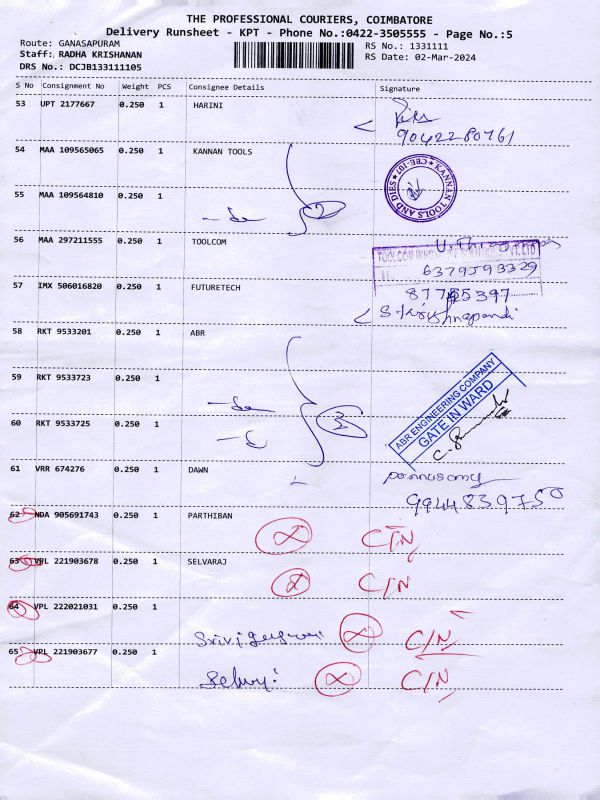 THE PROFESSIONAL COURIERS, COIMBATORE
Delivery Runsheet - KPT - Phone No.:0422-3505555 - Page No.:5
Route: GANASAPURAM
RS No.: 1331111
Staff: RADHA KRISHANAN
RS Date: 02-Mar-2024
DRS No.: DCJB133111105
S No Consignment No Weight PCS Consignee Details Signature
53 UPT 2177667 0.250 1 HARINI
9042280761
54 MAA 109565065 0.250 1 KANNAN TOOLS
KANNAN TOOLS AND DIES ★ CBE-107 ★
55 MAA 109564810 0.250 1
2
56 MAA 297211555 0.250 1 TOOLCOM
6379593329
57 IMX 506016820 0.250 1 FUTURETECH
S. Krishnapandi
58 RKT 9533201 0.250 1 ABR
59 RKT 9533723 0.250 1
3
ABR ENGINEERING COMPANY
GATE IN WARD
60 RKT 9533725 0.250 1
61 VRR 674276 0.250 1 DAWN
ponnusamy
9944839750
62 NDA 905691743 0.250 1 PARTHIBAN
C/N
63 VPL 221903678 0.250 1 SELVARAJ
C/N
64 VPL 222021031 0.250 1
C/N
65 VPL 221903677 0.250 1
Selvy:
C/N